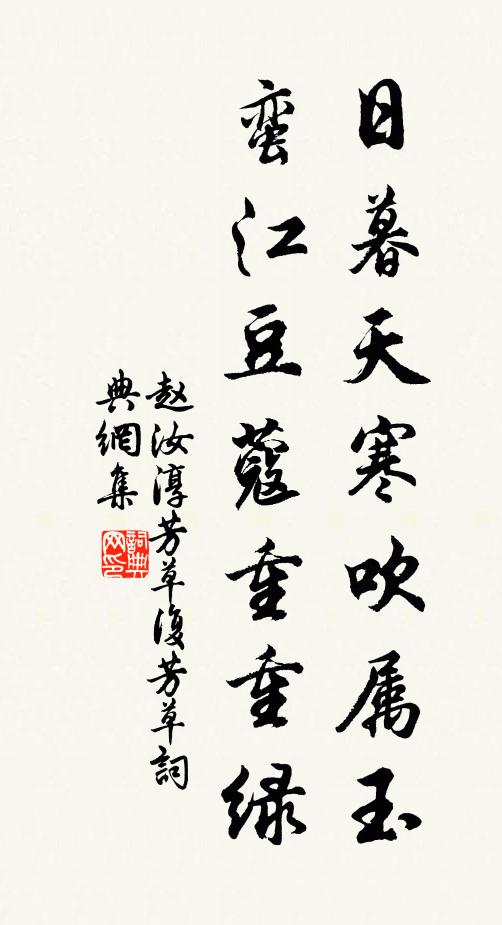 日暮天寒吹属玉
蛮江豆蔻重重绿
赵汝淳芳草复芳草詞
典網集
詞典网印